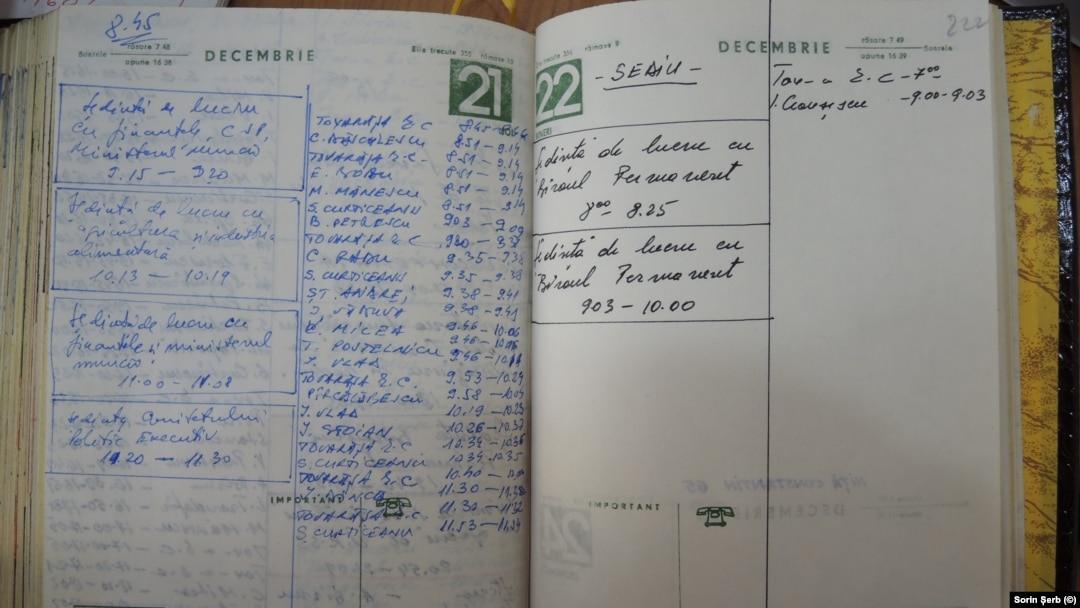 8.45
Soarele răsare 7 48
apune 16 38
DECEMBRIE
Zile trecute 355 rămase 10
21
JOI
Ședință de lucru
cu finanțele, C.S.P.,
Ministerul Muncii
9.15 — 9.20
Ședință de lucru cu
agricultura și industria
alimentară
10.13 — 10.19
Ședință de lucru cu
finanțele și ministerul
muncii
11.00 — 11.08
Ședința Comitetului
Politic Executiv
11.20 — 11.30
TOVARĂȘA E.C 8.45 -
C. DĂSCĂLESCU 8.51 - 9.14
TOVARĂȘA E.C. 8.51 - 9.14
E. BOBU 8.51 - 9.14
M. MĂNESCU 8.51 - 9.14
S. CURTICEANU 8.51 - 9.14
B. PETRESCU 903 - 909
TOVARĂȘA E.C
C. RADU 9.35 - 9.38
S. CURTICEANU 9.35 - 9.38
ȘT. ANDREI 9.38 - 9.41
J. VĂDUVA 9.38 - 9.41
MILEA 9.46 - 10.06
T. POSTELNICU 9.46 -
J. VLAD 9.46 -
TOVARĂȘA E.C. 9.53 - 10.29
PÎRCĂLĂBESCU 9.58 -
J. VLAD 10.19 -
J. STOIAN 10.26 -
TOVARĂȘA E.C 10.34 -
S. CURTICEANU 10.34 - 10.35
TOVARĂȘA E.C 10.40 -
11.30 -
TOVARĂȘA E.C. 11.30 - 11.32
S. CURTICEANU 11.53 - 11.54
IMPORTANT
222
Zile trecute 356 rămase 9
22
VINERI
- SEDIU -
DECEMBRIE
răsare 7 49 Soarele
apune 16 39
Tov-a E.C - 7ºº
- 9.00 - 9.03
Ședință de lucru cu
Biroul Permanent
8ºº 8.25
Ședință de lucru cu
Biroul Permanent
903 - 10.00
IMPORTANT
Sorin Șerb (©)